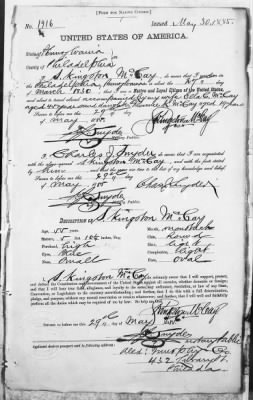 [FORM FOR NATIVE CITIZEN.]
No. 1916 Issued May 30. 1885.
UNITED STATES OF AMERICA.
State of Pennsylvania
County of Philadelphia
I, S. Kingston McCay, do swear that I was born in
Philadelphia, Pennsylvania on the
March, 1830 that I am a Native and Loyal Citizen of the United States,
and about to travel abroad accompanied by my wife
aged years and daughter McCay aged years
Sworn to before me this day
of May 1885 S. Kingston McCay
Snyder
Notary Public.
I, Charles J. Snyder, do swear that I am acquainted
with the above-named S. Kingston McCay, and with the facts stated
by him and that the same are true to the best of my knowledge and belief.
Sworn to before me this 29th day
of May 1885 Chas. J. Snyder
Snyder
Notary Public.
DESCRIPTION OF S. Kingston McCay
Age, 55 years. Mouth,
Stature, 5 feet inches, Eng. Chin, round
Forehead, high Hair, light
Eyes, blue Complexion, light
Nose, small Face, oval
I, S. Kingston McCay do solemnly swear that I will support, protect,
and defend the Constitution and Government of the United States against all enemies, whether domestic or foreign;
and that I will bear true faith, allegiance, and loyalty to the same, any ordinance, resolution, or law of any State,
Convention, or Legislature to the contrary notwithstanding; and further, that I do this with a full determination,
pledge, and purpose, without any mental reservation or evasion whatsoever; and further, that I will well and faithfully
perform all the duties which may be required of me by law: So help me God.
S. Kingston McCay
Sworn to before me this 29th day of May 1885
Snyder
Notary Public
Applicant desires passport sent to following address:
432 Library St
Phila